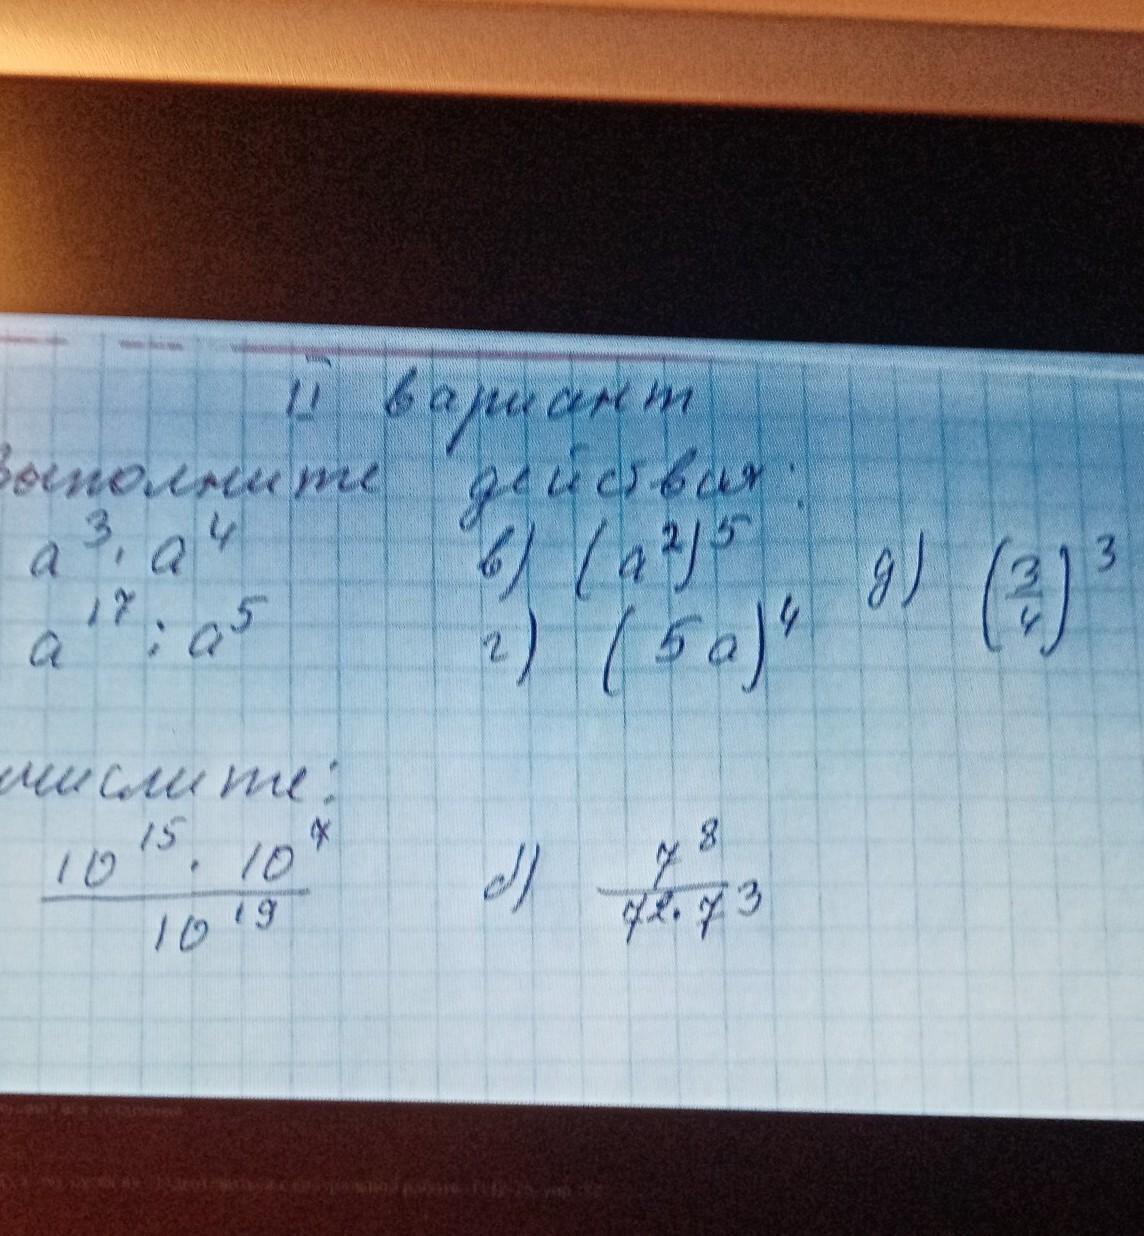 II вариант
Выполните действия:
a³ · a⁴ в) (a²)⁵ д) (3/4)³
a¹⁷ : a⁵ г) (5a)⁴
числите:
10¹⁵ · 10⁷ / 10¹⁹ б) 7⁸ / 7² · 7³